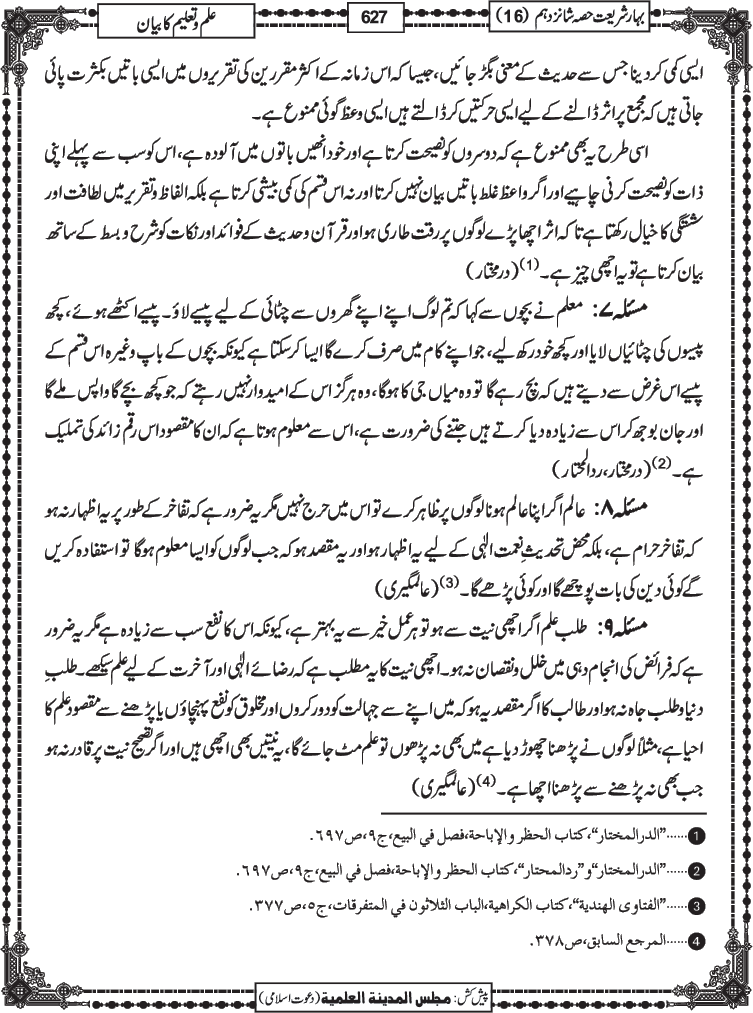 بہارِ شریعت حصہ شانزدہم (16)
627
علم و تعلیم کا بیان
ایسی کمی کر دینا جس سے حدیث کے معنی بگڑ جائیں، جیسا کہ اس زمانہ کے اکثر مقررین کی تقریروں میں ایسی باتیں بکثرت پائی
جاتی ہیں کہ مجمع پر اثر ڈالنے کے لیے ایسی حرکتیں کر ڈالتے ہیں ایسی وعظ گوئی ممنوع ہے۔
اسی طرح یہ بھی ممنوع ہے کہ دوسروں کو نصیحت کرتا ہے اور خود انھیں باتوں میں آلودہ ہے، اس کو سب سے پہلے اپنی
ذات کو نصیحت کرنی چاہیے اور اگر واعظ غلط باتیں بیان نہیں کرتا اور نہ اس قسم کی کمی بیشی کرتا ہے بلکہ الفاظ و تقریر میں لطافت اور
شستگی کا خیال رکھتا ہے تاکہ اثر اچھا پڑے لوگوں پر رقت طاری ہو اور قرآن و حدیث کے فوائد اور نکات کو شرح و بسط کے ساتھ
بیان کرتا ہے تو یہ اچھی چیز ہے۔(1) (درمختار)
مسئلہ ۷: معلم نے بچوں سے کہا کہ تم لوگ اپنے اپنے گھروں سے چٹائی کے لیے پیسے لاؤ۔ پیسے اکٹھے ہوئے، کچھ
پیسوں کی چٹائیاں لایا اور کچھ خود رکھ لیے، جو اپنے کام میں صرف کرے گا ایسا کرسکتا ہے کیونکہ بچوں کے باپ وغیرہ اس قسم کے
پیسے اس غرض سے دیتے ہیں کہ بچ رہے گا تو وہ میاں جی کا ہوگا، وہ ہرگز اس کے امیدوار نہیں رہتے کہ جو کچھ بچے گا واپس ملے گا
اور جان بوجھ کر اس سے زیادہ دیا کرتے ہیں جتنے کی ضرورت ہے، اس سے معلوم ہوتا ہے کہ ان کا مقصود اس رقم زائد کی تملیک
ہے۔(2) (درمختار، ردالمحتار)
مسئلہ ۸: عالم اگر اپنا عالم ہونا لوگوں پر ظاہر کرے تو اس میں حرج نہیں مگر یہ ضرور ہے کہ تفاخر کے طور پر یہ اظہار نہ ہو
کہ تفاخر حرام ہے، بلکہ محض تحدیثِ نعمت الٰہی کے لیے یہ اظہار ہو اور یہ مقصد ہو کہ جب لوگوں کو ایسا معلوم ہوگا تو استفادہ کریں
گے کوئی دین کی بات پوچھے گا اور کوئی پڑھے گا۔(3) (عالمگیری)
مسئلہ ۹: طلب علم اگر اچھی نیت سے ہو تو ہر عمل خیر سے یہ بہتر ہے، کیونکہ اس کا نفع سب سے زیادہ ہے مگر یہ ضرور
ہے کہ فرائض کی انجام دہی میں خلل و نقصان نہ ہو۔ اچھی نیت کا یہ مطلب ہے کہ رضائے الٰہی اور آخرت کے لیے علم سیکھے۔ طلبِ
دنیا و طلب جاہ نہ ہو اور طالب کا اگر مقصد یہ ہو کہ میں اپنے سے جہالت کو دور کروں اور مخلوق کو نفع پہنچاؤں یا پڑھنے سے مقصود علم کا
احیا ہے، مثلاً لوگوں نے پڑھنا چھوڑ دیا ہے میں بھی نہ پڑھوں تو علم مٹ جائے گا، یہ نیتیں بھی اچھی ہیں اور اگر تصحیح نیت پر قادر نہ ہو
جب بھی نہ پڑھنے سے پڑھنا اچھا ہے۔(4) (عالمگیری)
1......"الدرالمختار"، کتاب الحظر والإباحة، فصل في البيع، ج٩، ص٦٩٧.
2......"الدرالمختار" و"ردالمحتار"، کتاب الحظر والإباحة، فصل في البيع، ج٩، ص٦٩٧.
3......"الفتاوى الهندية"، كتاب الكراهية، الباب الثلاثون في المتفرقات، ج٥، ص٣٧٧.
4......المرجع السابق، ص٣٧٨.
پیش کش: مجلس المدینة العلمیة (دعوتِ اسلامی)